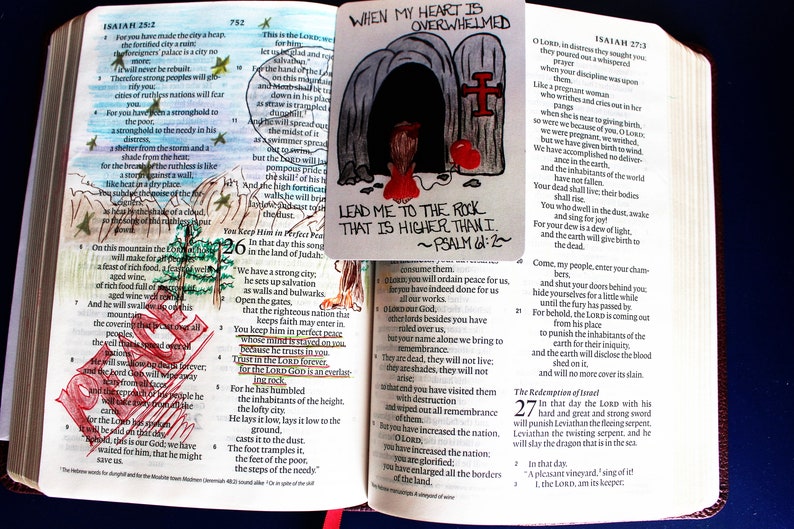 ISAIAH 25:2
752
2 For you have made the city a heap,
the fortified city a ruin;
the foreigners' palace is a city no
more;
it will never be rebuilt.
3 Therefore strong peoples will glo-
rify you;
cities of ruthless nations will fear
you.
4 For you have been a stronghold to
the poor,
a stronghold to the needy in his
distress,
a shelter from the storm and a
shade from the heat;
for the breath of the ruthless is like
a storm against a wall,
5 like heat in a dry place.
You subdue the noise of the for-
eigners;
as heat by the shade of a cloud,
so the song of the ruthless is put
down.
6 On this mountain the LORD of hosts
will make for all peoples
a feast of rich food, a feast of well-
aged wine,
of rich food full of marrow, of
aged wine well refined.
7 And he will swallow up on this
mountain
the covering that is cast over all
peoples,
the veil that is spread over all
nations.
8 He will swallow up death forever;
and the Lord GOD will wipe away
tears from all faces,
and the reproach of his people he
will take away from all the
earth,
for the LORD has spoken.
9 It will be said on that day,
"Behold, this is our God; we have
waited for him, that he might
save us.
This is the LORD; we
for him;
let us be glad and rej
salvation."
10 For the hand of the LORD
on this mountain
and Moab shall be tram
down in his place
as straw is trampled
dunghill.
11 And he will spread out
the midst of it
as a swimmer spread
out to swim,
but the LORD will lay
pompous pride
the skill² of his h
12 And the high fortificati
walls he will bring d
lay low, and cast to
the dust.
You Keep Him in Perfect Pea
26 In that day this song
in the land of Judah:
"We have a strong city;
he sets up salvation
as walls and bulwarks.
2 Open the gates,
that the righteous nation that
keeps faith may enter in.
3 You keep him in perfect peace
whose mind is stayed on you,
because he trusts in you.
4 Trust in the LORD forever,
for the LORD GOD is an everlast-
ing rock.
5 For he has humbled
the inhabitants of the height,
the lofty city.
He lays it low, lays it low to the
ground,
casts it to the dust.
6 The foot tramples it,
the feet of the poor,
the steps of the needy."
¹ The Hebrew words for dunghill and for the Moabite town Madmen (Jeremiah 48:2) sound alike ² Or in spite of the skill
WHEN MY HEART IS
OVERWHELMED
LEAD ME TO THE ROCK
THAT IS HIGHER THAN I.
~PSALM 61:2~
adversaries
consume them.
12 O LORD, you will ordain peace for us,
for you have indeed done for us
all our works.
13 O LORD our God,
other lords besides you have
ruled over us,
but your name alone we bring to
remembrance.
14 They are dead, they will not live;
they are shades, they will not
arise;
to that end you have visited them
with destruction
and wiped out all remembrance
of them.
15 But you have increased the nation,
O LORD,
you have increased the nation;
you are glorified;
you have enlarged all the borders
of the land.
Hebrew manuscripts A vineyard of wine
ISAIAH 27:3
O LORD, in distress they sought you;
they poured out a whispered
prayer
when your discipline was upon
them.
Like a pregnant woman
who writhes and cries out in her
pangs
when she is near to giving birth,
so were we because of you, O LORD;
we were pregnant, we writhed,
but we have given birth to wind.
We have accomplished no deliver-
ance in the earth,
and the inhabitants of the world
have not fallen.
Your dead shall live; their bodies
shall rise.
You who dwell in the dust, awake
and sing for joy!
For your dew is a dew of light,
and the earth will give birth to
the dead.
20 Come, my people, enter your cham-
bers,
and shut your doors behind you;
hide yourselves for a little while
until the fury has passed by.
21 For behold, the LORD is coming out
from his place
to punish the inhabitants of the
earth for their iniquity,
and the earth will disclose the blood
shed on it,
and will no more cover its slain.
The Redemption of Israel
27 In that day the LORD with his
hard and great and strong sword
will punish Leviathan the fleeing serpent,
Leviathan the twisting serpent, and he
will slay the dragon that is in the sea.
2 In that day,
"A pleasant vineyard,² sing of it!
3 I, the LORD, am its keeper;